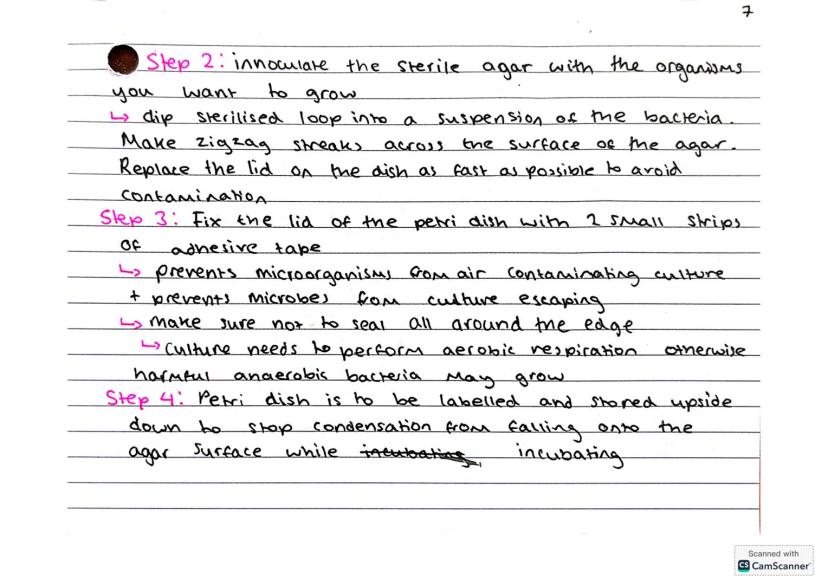 7
Step 2: innoculate the sterile agar with the organisms
you want to grow
↳ dip sterilised loop into a suspension of the bacteria.
Make zigzag streaks across the surface of the agar.
Replace the lid on the dish as fast as possible to avoid
contamination
Step 3: Fix the lid of the petri dish with 2 small strips
of adhesive tape
↳ prevents microorganisms from air contaminating culture
+ prevents microbes from culture escaping
↳ make sure not to seal all around the edge
↳ culture needs to perform aerobic respiration otherwise
harmful anaerobic bacteria may grow
Step 4: Petri dish is to be labelled and stored upside
down to stop condensation from falling onto the
agar surface while incubating incubating
Scanned with
CS CamScanner